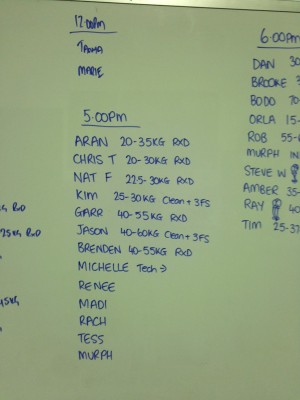 12:00PM
TAMA
MARIE
5:00PM
ARAN 20-35KG RXD
CHRIS T 20-30KG RXD
NAT F 22.5-30KG RXD
KIM 25-30KG Clean + 3FS
GARR 40-55KG RXD
JASON 40-60KG Clean + 3FS
BRENDEN 40-55KG RXD
MICHELLE Tech →
RENEE
MADI
RACH
TESS
MURPH
6:00PM
DAN 30
BROOKE
BODO 70
ORLA 15-
ROB 55-6
MURPH IN
STEVE W
AMBER 35
RAY 40
TIM 25-37
KG RXD
25KG RXD
45KG